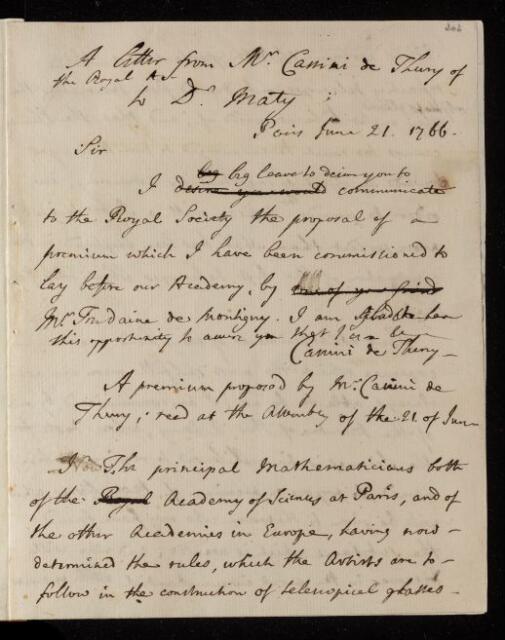 A letter from Mr. Cassini de Thury of
the Royal Ac.
to Dr. Maty;
Paris June 21. 1766.
Sir
beg beg leave to desire you to
I desire you would communicate
to the Royal Society the proposal of a
premium which I have been commissioned to
lay before our Academy, by one of your friend
Mr. Trudaine de Montigny. I am glad to have
this opportunity to assure you that I
Cassini de Thury
A premium proposed by Mr. Cassini de
Thury; read at the Assembly of the 21 of June
The principal Mathematicians both
of the Royal Academy of Sciences at Paris, and of
the other Academies in Europe, having now
determined the rules, which the Artists are to
follow in the construction of telescopical glasses